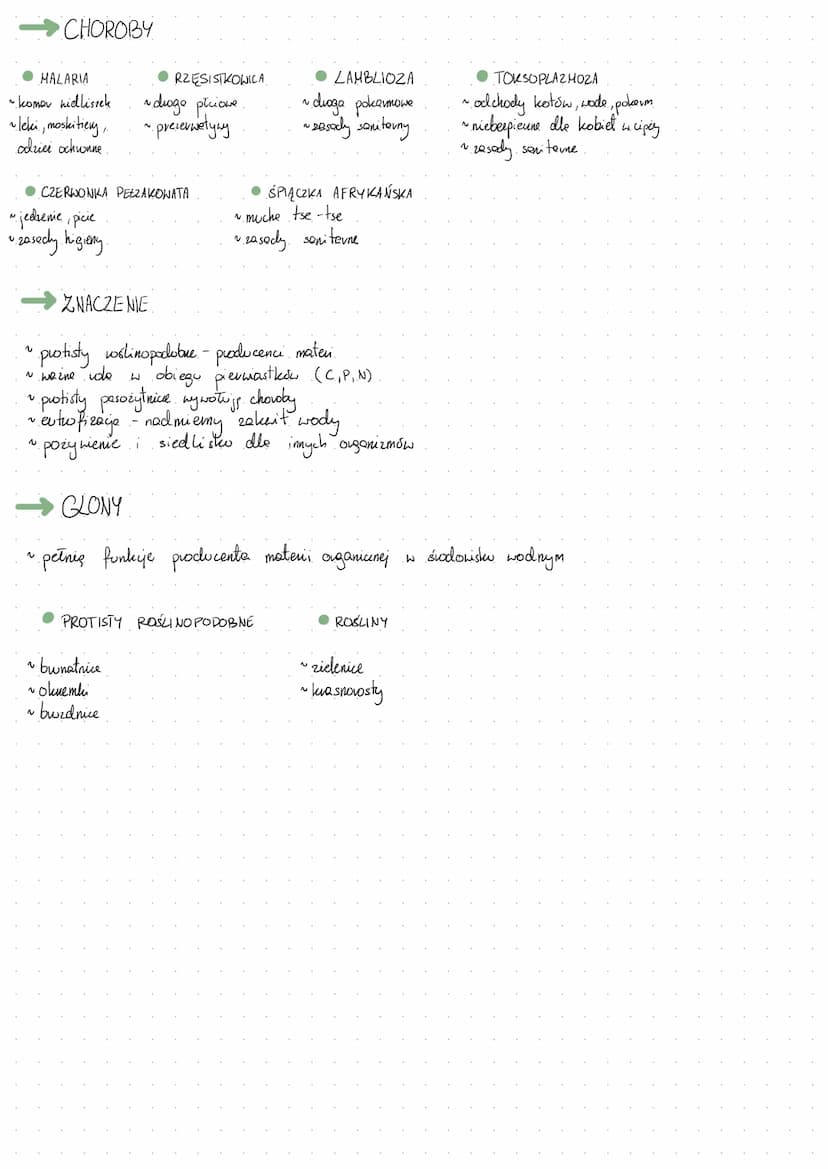 CHOROBY
MALARIA
~ komar widliszek
~ leki, moskitiery,
odzież ochronna
RZĘSISTKOWICA
~ droga płciowa
~ prezerwatywy
LAMBLIOZA
~ droga pokarmowa
~ zasady sanitarny
TOKSOPLAZMOZA
~ odchody kotów, woda, pokarm
~ niebezpieczne dla kobiet w ciąży
~ zasady sanitarne
CZERWONKA PEŁZAKOWATA
~ jedzenie, picie
~ zasady higieny
ŚPIĄCZKA AFRYKAŃSKA
~ mucha tse-tse
~ zasady sanitarne
ZNACZENIE
~ protisty roślinopodobne - producenci materi
~ ważna rola w obiegu pierwiastków (C,P,N)
~ protisty pasożytnicze wywołują choroby
~ eutrofizacja - nadmierny zakwit wody
~ pożywienie i siedlisko dla innych organizmów
GLONY
~ pełnią funkcje producenta materii organicznej w środowisku wodnym
PROTISTY ROŚLINOPODOBNE
~ brunatnice
~ okrzemki
~ bruzdnice
ROŚLINY
~ zielenice
~ krasnorosty